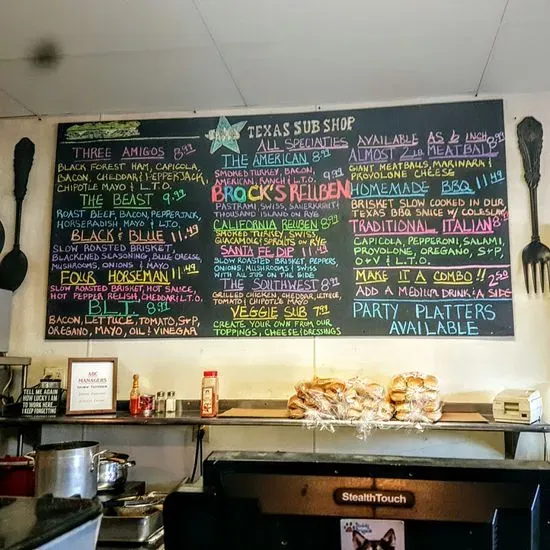 TEXAS SUB SHOP
ALL SPECIALTIES AVAILABLE AS 6 INCH
THREE AMIGOS 8.99
BLACK FOREST HAM, CAPICOLA,
BACON, CHEDDAR & PEPPERJACK,
CHIPOTLE MAYO & L.T.O.
THE BEAST 9.99
ROAST BEEF, BACON, PEPPERJACK,
HORSERADISH MAYO & L.T.O.
BLACK & BLUE 11.49
SLOW ROASTED BRISKET,
BLACKENED SEASONING, BLUE CHEESE,
MUSHROOMS, ONIONS & MAYO
FOUR HORSEMAN 11.49
SLOW ROASTED BRISKET, HOT SAUCE,
HOT PEPPER RELISH, CHEDDAR & L.T.O.
BLT 8.99
BACON, LETTUCE, TOMATO, S+P,
OREGANO, MAYO, OIL & VINEGAR
THE AMERICAN 8.99
SMOKED TURKEY, BACON,
AMERICAN, RANCH & L.T.O.
BROCK'S REUBEN
PASTRAMI, SWISS, SAUERKRAUT &
THOUSAND ISLAND ON RYE
CALIFORNIA REUBEN 8.99
SMOKED TURKEY, SWISS,
GUACAMOLE & SPROUTS ON RYE
SANTA FE DIP 11.49
SLOW ROASTED BRISKET, PEPPERS,
ONIONS, MUSHROOMS & SWISS
WITH AU JUS ON THE SIDE
THE SOUTHWEST 8.99
GRILLED CHICKEN, CHEDDAR, LETTUCE,
TOMATO & CHIPOTLE MAYO
VEGGIE SUB 7.99
CREATE YOUR OWN FROM OUR
TOPPINGS, CHEESE & DRESSINGS
ALMOST 2 LB MEATBALL
GIANT MEATBALLS, MARINARA &
PROVOLONE CHEESE
HOMEMADE BBQ 11.49
BRISKET SLOW COOKED IN OUR
TEXAS BBQ SAUCE W/ COLESLAW
TRADITIONAL ITALIAN 8.99
CAPICOLA, PEPPERONI, SALAMI,
PROVOLONE, OREGANO, S+P,
O+V & L.T.O.
MAKE IT A COMBO!! 2.50
ADD A MEDIUM DRINK & A SIDE
PARTY PLATTERS
AVAILABLE
TELL ME AGAIN
HOW LUCKY I AM
TO WORK HERE...
I KEEP FORGETTING
MANAGERS
StealthTouch